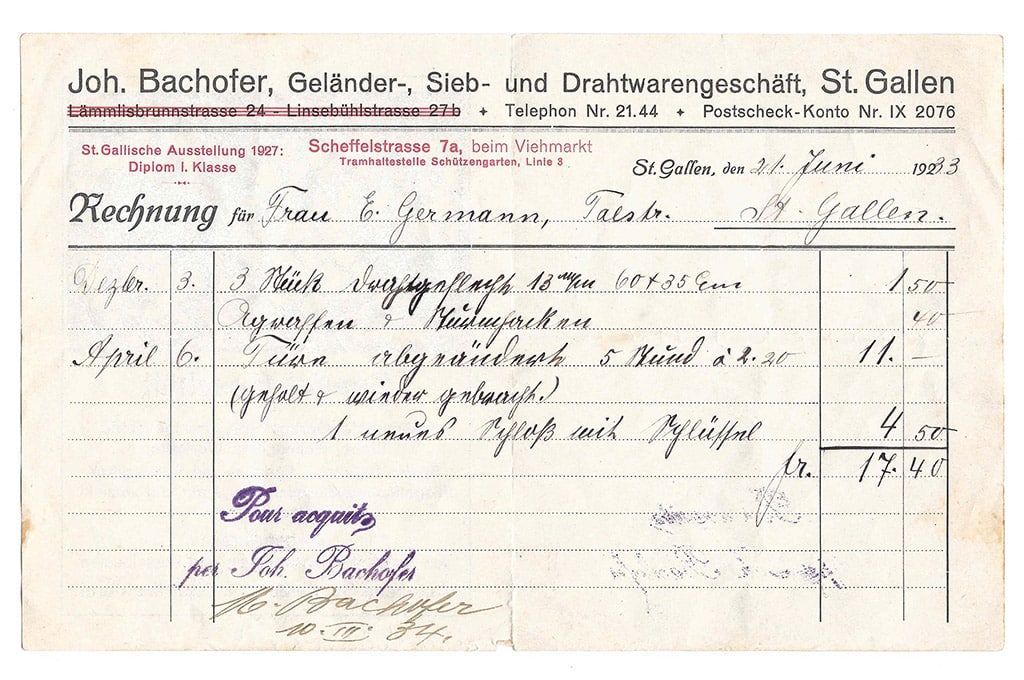 Joh. Bachofer, Geländer-, Sieb- und Drahtwarengeschäft, St. Gallen
Lämmlisbrunnstrasse 24 - Linsebühlstrasse 27b + Telephon Nr. 21.44 + Postscheck-Konto Nr. IX 2076
St. Gallische Ausstellung 1927:
Diplom I. Klasse
Scheffelstrasse 7a, beim Viehmarkt
Tramhaltestelle Schützengarten, Linie 3
St. Gallen, den 21. Juni 1933
Rechnung für Frau E. Germann, Talstr. St. Gallen.
Dezbr. 3. 3 Stück Drahtgeflecht 13 m/m 60 x 35 Cm 1 50
Agraffen & 40
April 6. Türe abgeändert 5 Stund à 2.20 11. —
(geholt & wieder gebracht.)
1 neues Schloß mit Schlüssel 4 50
fr. 17. 40
Pour acquit
per Joh. Bachofer
M. Bachofer
10. III. 34.